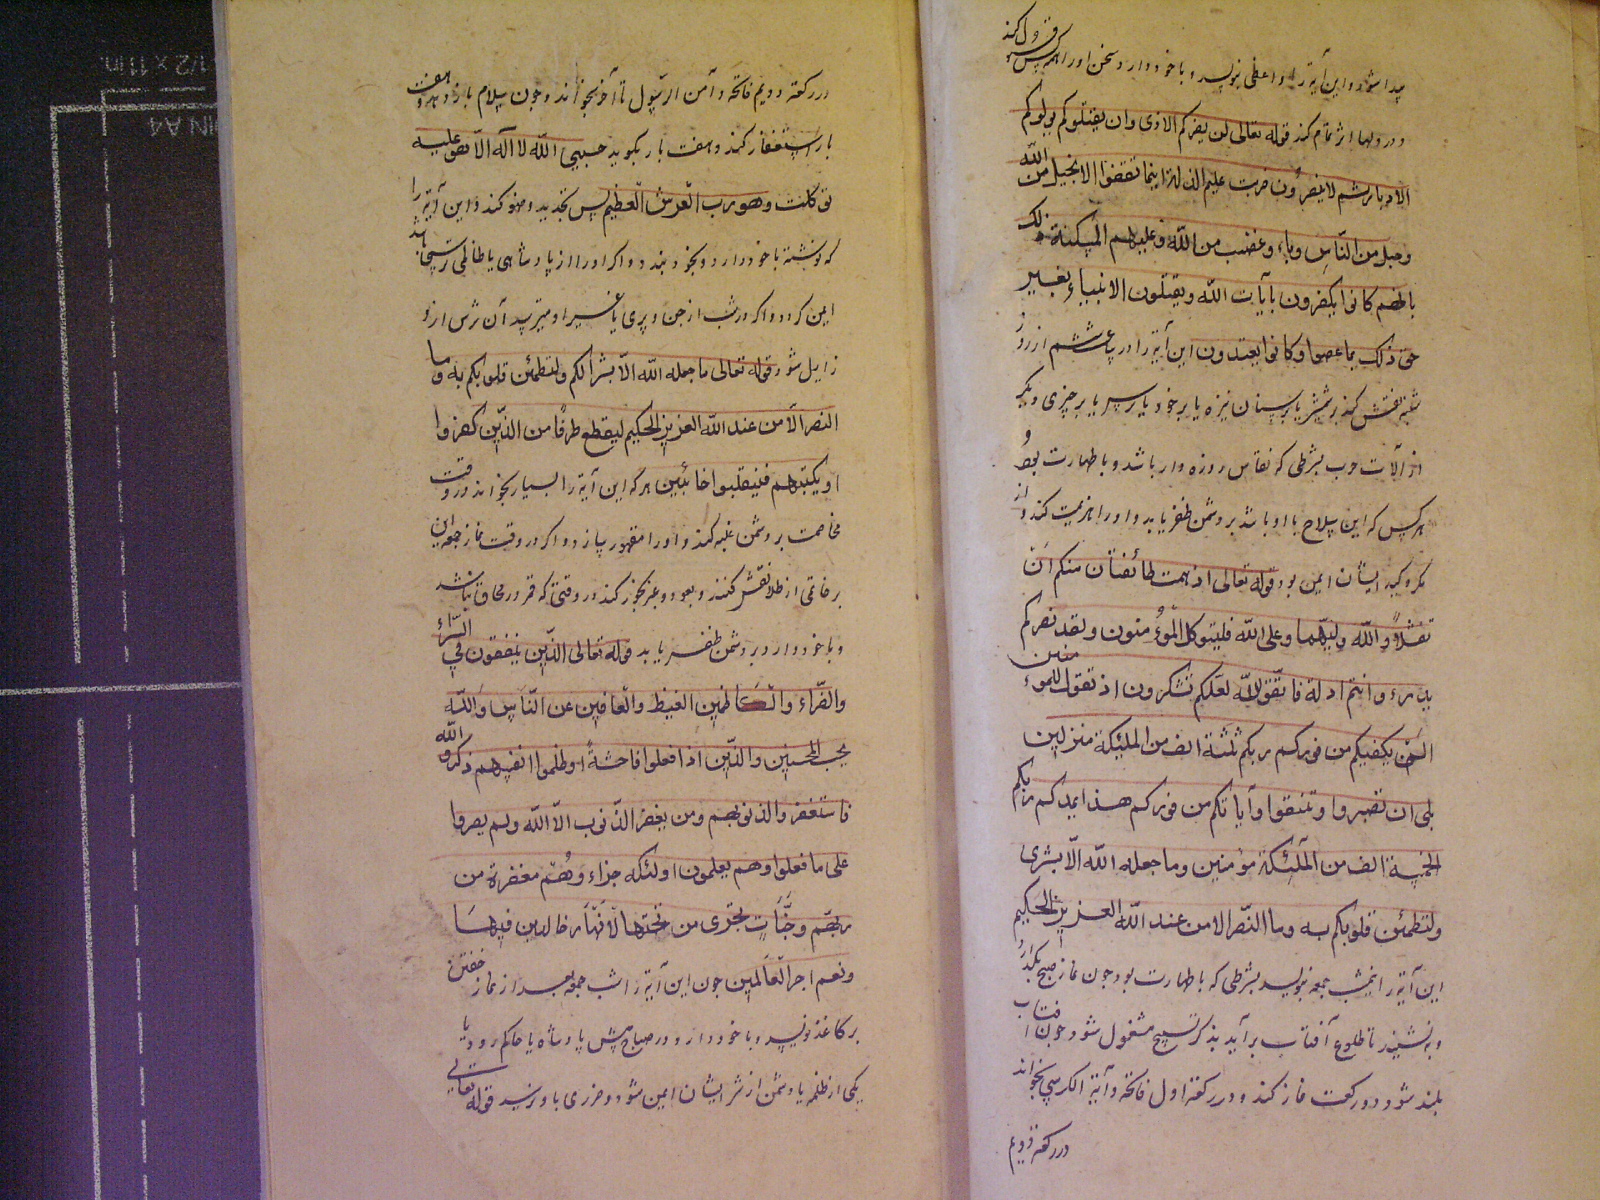 پیدا شود و این آیة را واعظی بنویسد و با خود دارد سخن او را همه کس قبول کند
و در دلها اثر تمام کند قوله تعالی لن یضرکم الا اذی وان یقتلوکم یولوکم
الادبار ثم لا ینصرون ضربت علیهم الذلة اینما ثقفوا الا بحبل من الله
وحبل من الناس وباء و غضب من الله و علیهم المسکنة ذلک
بانهم کانوا یکفرون بآیات الله ویقتلون الانبیاء بغیر
حق ذلک بما عصوا وکانوا یعتدون این آیة را در ساعت ششم از روز
شنبه نقش کند بر شمشیر یا بر سنان نیزه یا بر خود یا بر سپر یا بر چیزی دیگر
از آلات حرب بشرطی که نقاش روزه دار باشد و با طهارت بود
هر کس که این سلاح با او باشد بر دشمن ظفر یابد و او را هزیمت کند و از
مکر و کید ایشان ایمن بود قوله تعالی اذ همت طائفتان منکم ان
تفشلا و الله ولیهما وعلی الله فلیتوکل المؤمنون ولقد نصرکم
ببدر و انتم اذلة فاتقوا الله لعلکم تشکرون اذ تقول للمؤمنین
الن یکفیکم من فورکم ربکم ثلثة الف من الملئکة منزلین
بلی ان تصبروا وتتقوا ویأتکم من فورکم هذا یمددکم ربکم
بخمسة الف من الملئکة مؤمنین وما جعله الله الا بشری
ولتطمئن قلوبکم به وما النصر الا من عند الله العزیز الحکیم
این آیة را شب جمعه بنویسد بشرطی که با طهارت بود چون نماز صبح بگذارد
و بنشیند تا طلوع آفتاب برآید بذکر تسبیح مشغول شود چون آفتاب
بلند شود دو رکعت نماز کند و در رکعة اول فاتحة و آیة الکرسی بخواند
در رکعة دویم
در رکعة دویم فاتحة و آمن الرسول تا آخر بخواند و چون سلام باز دهد هفت
بار استغفار کند و هفت بار بگوید حسبی الله لا آله الا هو علیه
توکلت وهو رب العرش العظیم پس تجدید وضو کند و این آیة را
که نوشته با خود دارد و بخود بندد و اگر او را از پادشاهی یا ظالمی ترسی باشد
ایمن گردد و اگر در شب از جن و پری یا غیر او میترسد آن ترس از او
زایل شود قوله تعالی ما جعله الله الا بشرا لکم ولتطمئن قلوبکم به وما
النصر الا من عند الله العزیز الحکیم لیقطع طرفا من الذین کفروا
او یکبتهم فینقلبوا خائبین هر که این آیة را بسیار بخواند در وقت
مخاصمت بر دشمن غلبه کند و او را مقهور سازد و اگر در وقت نماز جمعه این
بر خاتمی از طلا نقش کنند و بعود و عنبر بخور کند در وقتی که قمر در محاق نباشد
و با خود دارد بر دشمن ظفر یابد قوله تعالی الذین ینفقون فی السراء
والضراء والکاظمین الغیظ والعافین عن الناس والله
یحب المحسنین والذین اذا فعلوا فاحشة او ظلموا انفسهم ذکروا الله
فاستغفروا لذنوبهم ومن یغفر الذنوب الا الله ولم یصروا
علی ما فعلوا وهم یعلمون اولئک جزاءوهم مغفرة من
ربهم وجنات تجری من تحتها الانهار خالدین فیها
ونعم اجر العالمین چون این آیة را شب جمعه بعد از نماز خفتن
بر کاغذ نویسد و با خود دارد و در صباح پیش پادشاه یا حاکم رود یا
یکی از ظلمه یا دشمن از شر ایشان ایمن شود و ضرری باو نرسد قوله تعالی
1/2 x 11 in.
MIN A4